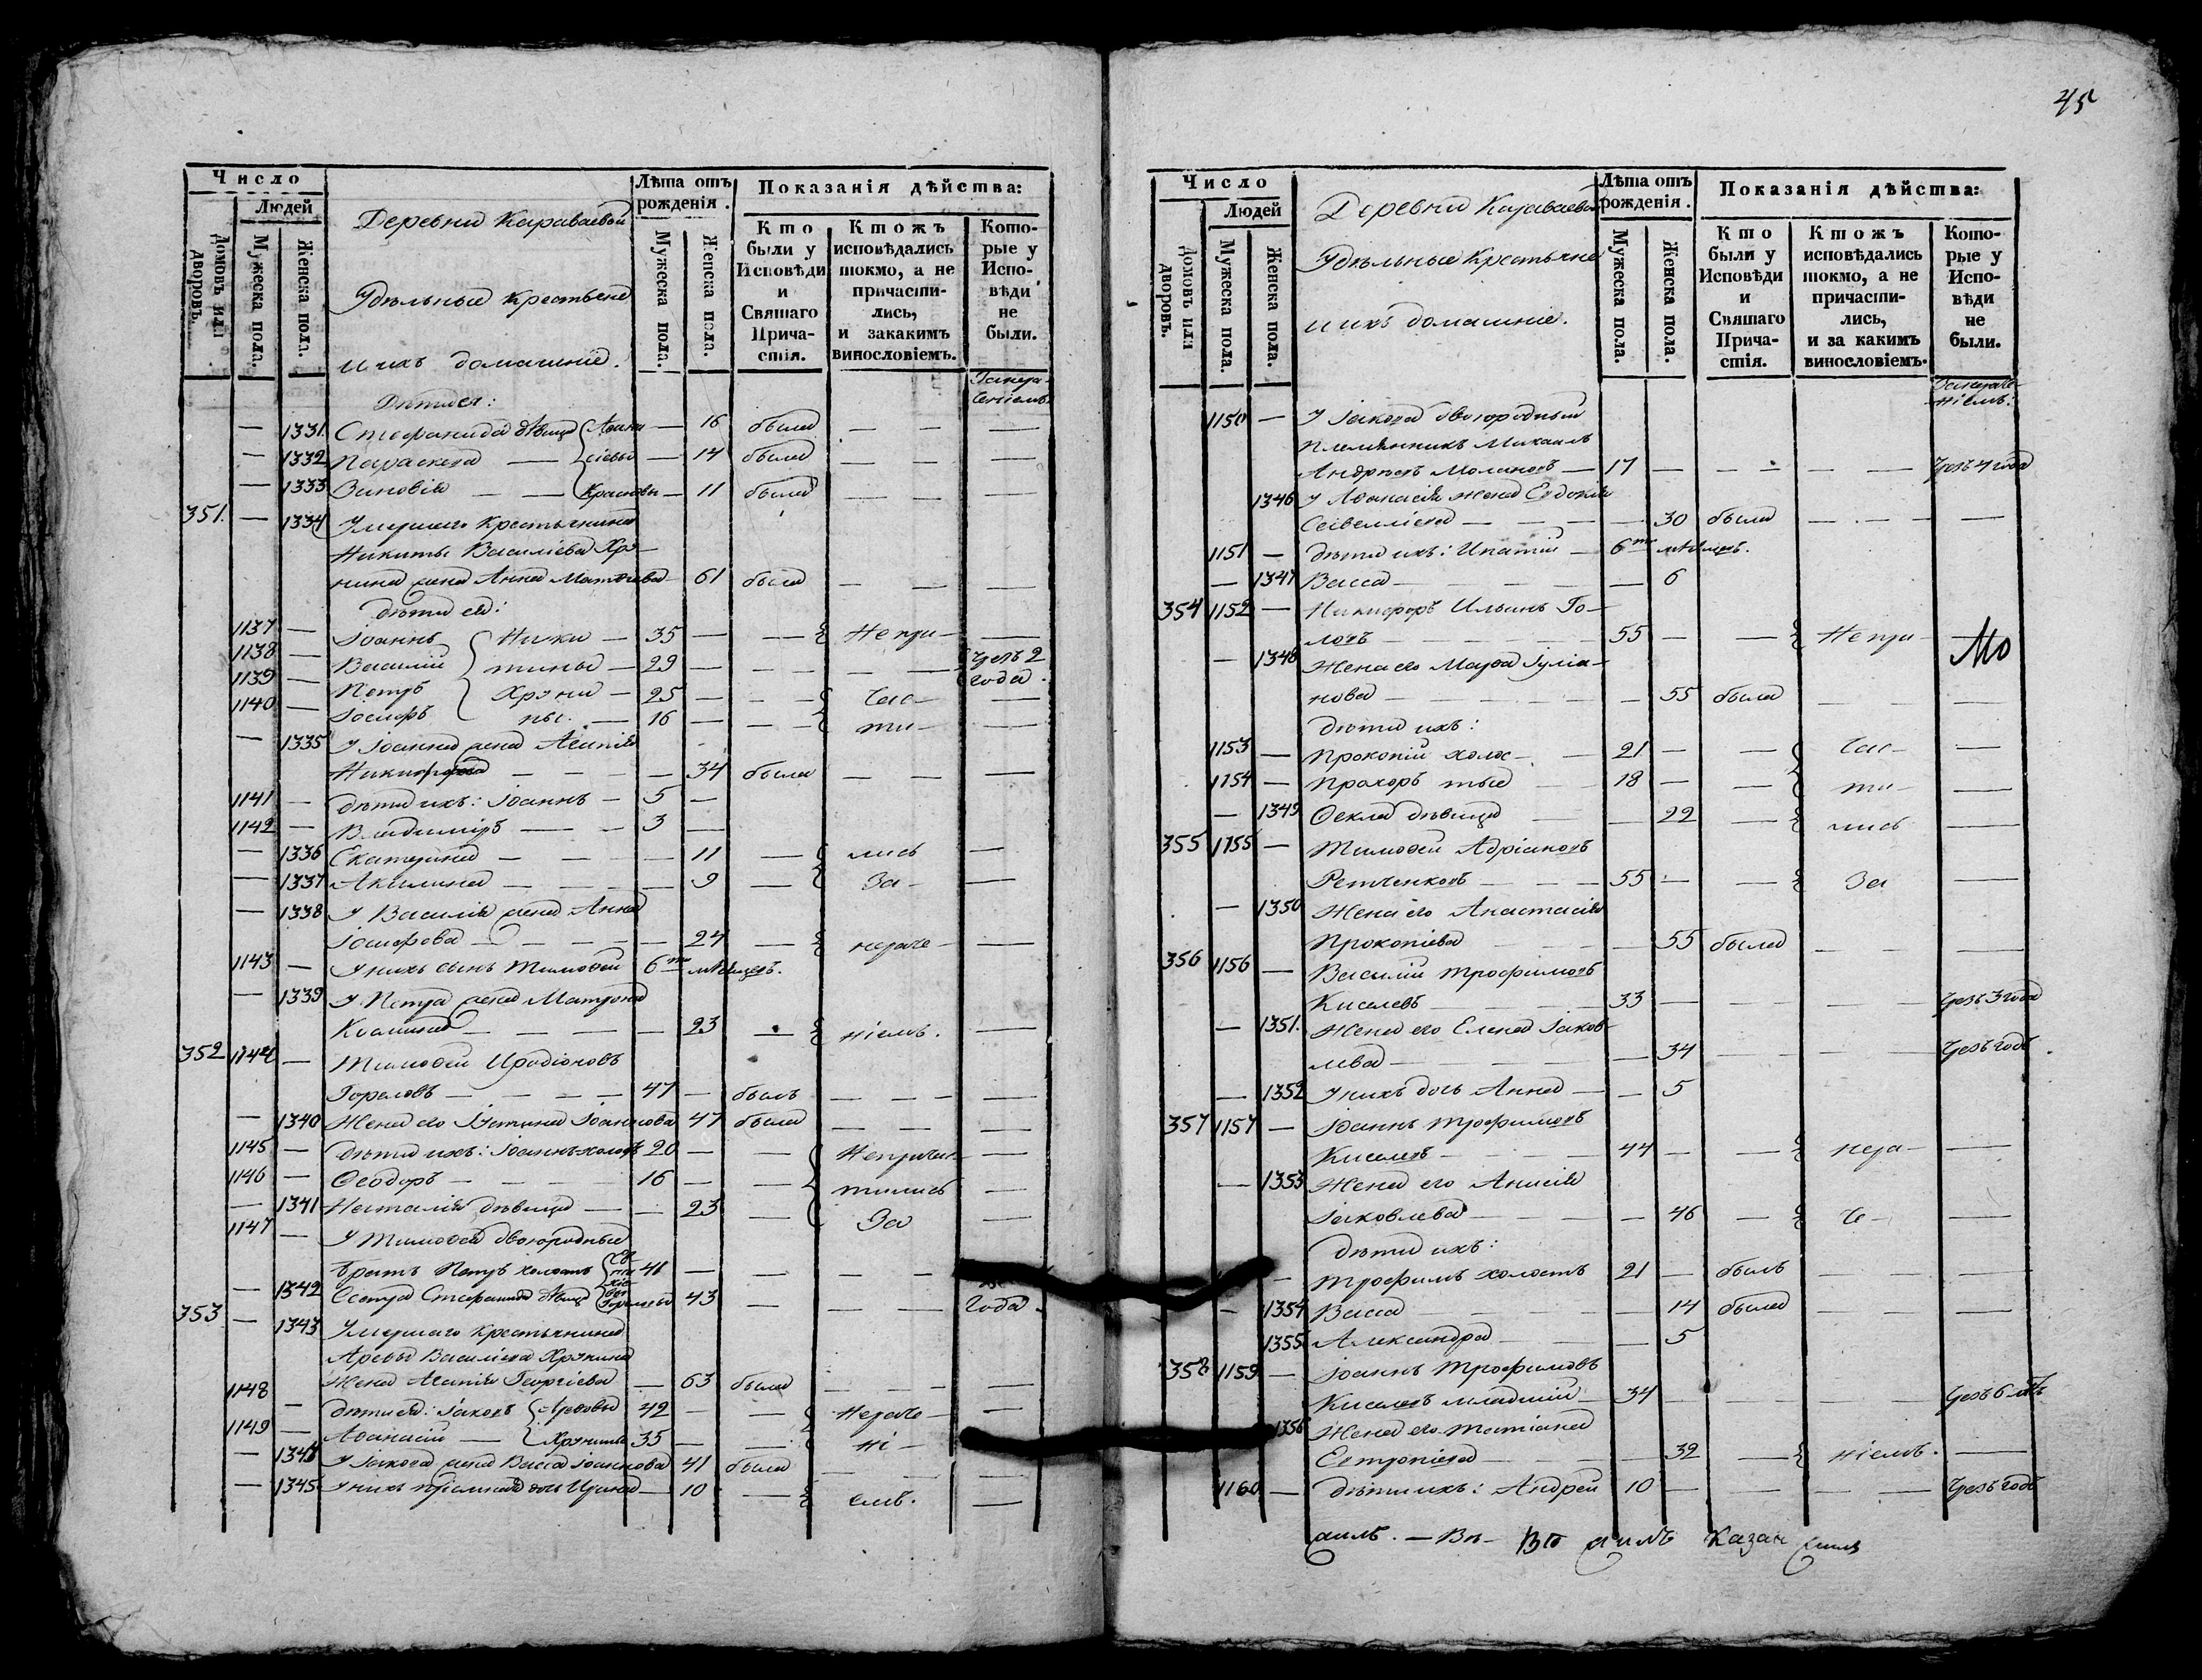 Число
Людей
Домовъ или дворовъ.
Мужеска пола.
Женска пола.
Деревни Караваевой
Удѣльные крестьяне
и ихъ домашніе.
Лѣта отъ рожденія.
Мужеска пола.
Женска пола.
Показанія дѣйства:
Кто были у Исповѣди и Святаго Причастія.
Ктожъ исповѣдались токмо, а не причастились, и закакимъ винословіемъ.
Которые у Исповѣди не были.
Дѣти ея:
— 1331 Стефанида дѣвица — 16 была — — —
— 1332 Параскева — — 14 была — — —
— 1333 Зиновія — — — 11 была — — —
351. — 1334 Умершаго крестьянина
Никиты Василіева Хрэ-
нина жена Анна Матѳиева 61 была — — —
дѣти ея:
1137 — Іоаннъ Ники — 35 — — Непри —
1138 — Василій тины — 29 — — — чрезъ 2 года.
1139 — Петръ Хрэни — 25 — — — час —
1140 — Іосифъ ны. — 16 — — — ти —
— 1335 У Іоанна жена Агапія
Никифорова — — — 34 была — — —
1141 — дѣти ихъ: Іоаннъ — 5 —
1142 — Владиміръ — — 3 —
— 1336 Екатерина — — — 11 — лись —
— 1337 Акилина — — — 9 — За- —
— 1338 У Василія жена Анна
Іосифова — — — 24 — нераче- —
1143 — У нихъ сынъ Тимоѳей 6ти мѣсяцевъ.
— 1339 У Петра жена Матрона
— — — 23 — ніемъ. —
352 1144 — Тимоѳей Иродіоновъ
Гореловъ — — — 47 — былъ — — —
— 1340 Жена его Іустина Іоаннова 47 была — — —
1145 — дѣти ихъ: Іоаннъ холостъ 20 — — Непричас- —
1146 — Ѳеодоръ — — 16 — — тились —
— 1341 Наталія дѣвица — — 23 — За —
1147 — У Тимоѳея двоюродные
братъ Петръ холостъ 41 — — — —
— 1342 Сестра Стефанида дѣвица 43 — — — года.
353 — 1343 Умершаго крестьянина
Арефы Василіева Хрэнина
Жена Агапія Георгіева — 63 была — — —
1148 — дѣти ея: Іаковъ Арефовы 42 — — Нераче- —
1149 — Аѳанасій — Хрэнины 35 — — ні- —
— 1344 У Іакова жена Васса Іоаннова 41 была — — —
— 1345 У нихъ дочь Ирина — 10 — емъ. —
45
Число
Людей
Домовъ или дворовъ.
Мужеска пола.
Женска пола.
Деревни Караваевой
Удѣльные крестьяне
и ихъ домашніе.
Лѣта отъ рожденія.
Мужеска пола.
Женска пола.
Показанія дѣйства:
Кто были у Исповѣди и Святаго Причастія.
Ктожъ исповѣдались токмо, а не причастились, и за какимъ винословіемъ.
Которые у Исповѣди не были.
1150 — У Іакова двоюродный
племянникъ Михаилъ
Андреевъ — 17 — — — — — чрезъ 4 года
1346 У Аѳанасія жена Евдокія
— — — 30 была — — —
1151 — дѣти ихъ: Ипатій — 6ти мѣсяцевъ.
— 1347 Васса — — — 6
354 1152 — Никифоръ Ильинъ Го-
ловъ — — — 55 — — Непри — Мо
— 1348 Жена его Марѳа Іуліа-
нова — — — 55 была — — —
дѣти ихъ:
1153 — Прокопій холос- — 21 — — час- —
1154 — Прохоръ тые — 18 — — ти- —
— 1349 Ѳекла дѣвица — — 22 — лись —
355 1155 — Тимоѳей Адріановъ
— — 55 — — За —
— 1350 Жена его Анастасія
Прокопіева — — 55 была — — —
356 1156 — Василій Трофимовъ
Киселевъ — — 33 — — — чрезъ 3 года
— 1351. Жена его Елена Іаков-
лева — — — 34 — — чрезъ годъ.
— 1352 У нихъ дочь Анна — — 5
357 1157 — Іоаннъ Трофимовъ
Киселевъ — — 44 — — нера- —
— 1353 Жена его Анисія
Іаковлева — — — 46 — че- —
дѣти ихъ:
— Трофимъ холостъ 21 — былъ — — —
— 1354 Васса — — — 14 была — — —
1355 Александра — — — 5
358 1159 — Іоаннъ Трофимовъ
Киселевъ младшій — 34 — — — — чрезъ 6 лѣтъ
1356 Жена его Татіана
Евтропіева — — 32 — ніемъ. —
1160 — дѣти ихъ: Андрей 10 — — — — чрезъ годъ